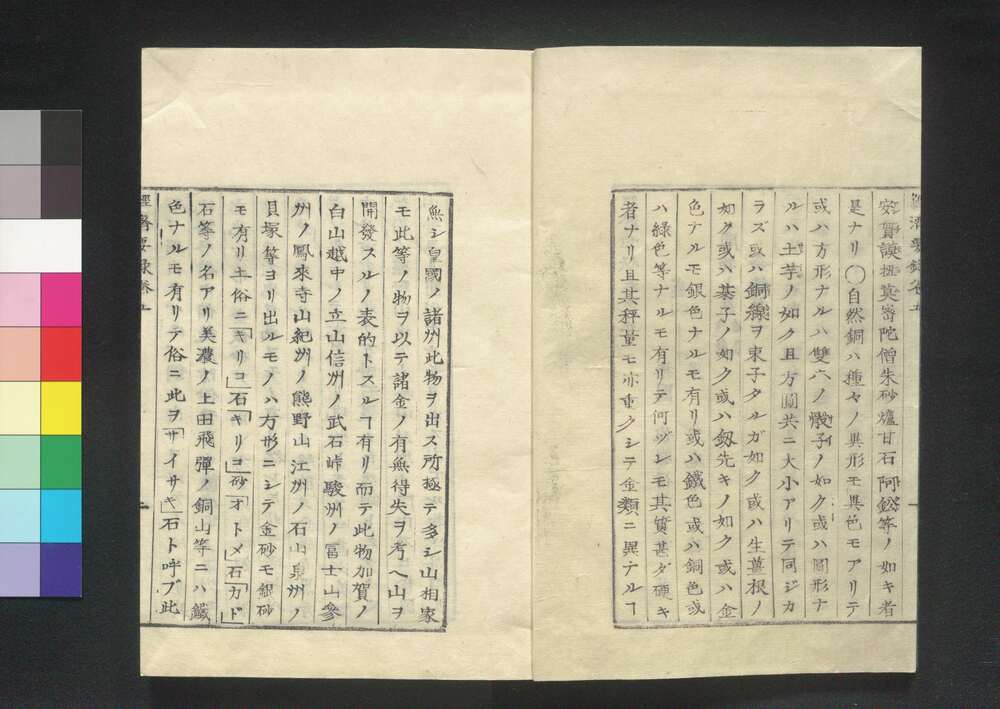 是ナリ〇自然銅ハ種々ノ異形モ異色モアリテ
或ハ方形ナルハ雙六ノ骰子ノ如ク或ハ圓形ナ
ルハ土芋ノ如ク且方圓共ニ大小アリテ同ジカ
ラズ或ハ銅線ヲ束子タルガ如ク或ハ生薑根ノ
如ク或ハ碁子ノ如ク或ハ釼先キノ如ク或ハ金
色ナルモ銀色ナルモ有リ或ハ鐵色或ハ銅色或
ハ綠色等ナルモ有リテ何ヅレモ其質甚ダ硬キ
者ナリ且其秤量モ亦重クシテ金類ニ異ナルヿ
無シ皇國ノ諸州此物ヲ出ス所極テ多シ山相家
モ此等ノ物ヲ以テ諸金ノ有無得失ヲ考ヘ山ヲ
開發スルノ表的トスルヿ有リ而テ此物加賀ノ
白山越中ノ立山信州ノ武石峠駿州ノ冨士山參
州ノ鳳來寺山紀州ノ熊野山江州ノ石山泉州ノ
貝塚等ヨリ出ルモノハ方形ニシテ金砂モ銀砂
モ有リ土俗ニ「キリコ」石「キリコ」砂「オトメ」石「カド」
石等ノ名アリ美濃ノ上田飛彈ノ銅山等ニハ鐵
色ナルモ有リテ俗ニ此ヲ「サイサキ」石ト呼ブ此